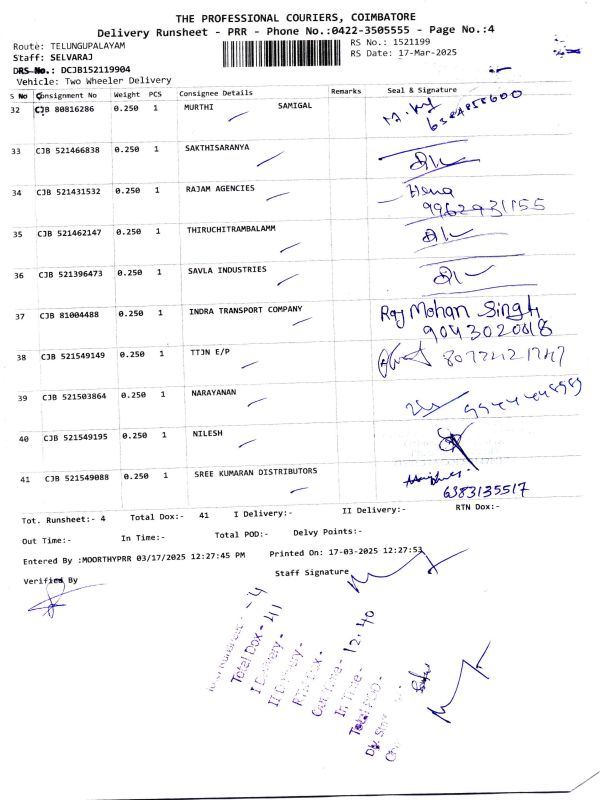 THE PROFESSIONAL COURIERS, COIMBATORE
Delivery Runsheet - PRR - Phone No.:0422-3505555 - Page No.:4
Route: TELUNGUPALAYAM
RS No.: 1521199
Staff: SELVARAJ
RS Date: 17-Mar-2025
DRS No.: DCJB152119904
Vehicle: Two Wheeler Delivery
S No Consignment No Weight PCS Consignee Details Remarks Seal & Signature
32 CJB 80816286 0.250 1 MURTHI SAMIGAL
33 CJB 521466838 0.250 1 SAKTHISARANYA
34 CJB 521431532 0.250 1 RAJAM AGENCIES
9962931155
35 CJB 521462147 0.250 1 THIRUCHITRAMBALAMM
36 CJB 521396473 0.250 1 SAVLA INDUSTRIES
37 CJB 81004488 0.250 1 INDRA TRANSPORT COMPANY Raj Mohan Singh
9043020618
38 CJB 521549149 0.250 1 TTJN E/P
39 CJB 521503864 0.250 1 NARAYANAN
40 CJB 521549195 0.250 1 NILESH
41 CJB 521549088 0.250 1 SREE KUMARAN DISTRIBUTORS
6383135517
Tot. Runsheet:- 4 Total Dox:- 41 I Delivery:- II Delivery:- RTN Dox:-
Out Time:- In Time:- Total POD:- Delvy Points:-
Entered By :MOORTHYPRR 03/17/2025 12:27:45 PM Printed On: 17-03-2025 12:27:53
Verified By Staff Signature
4
Total Dox - 41
I Delivery -
II Delivery -
RTN Dox -
Out Time - 12.40
In Time -
Total POD -